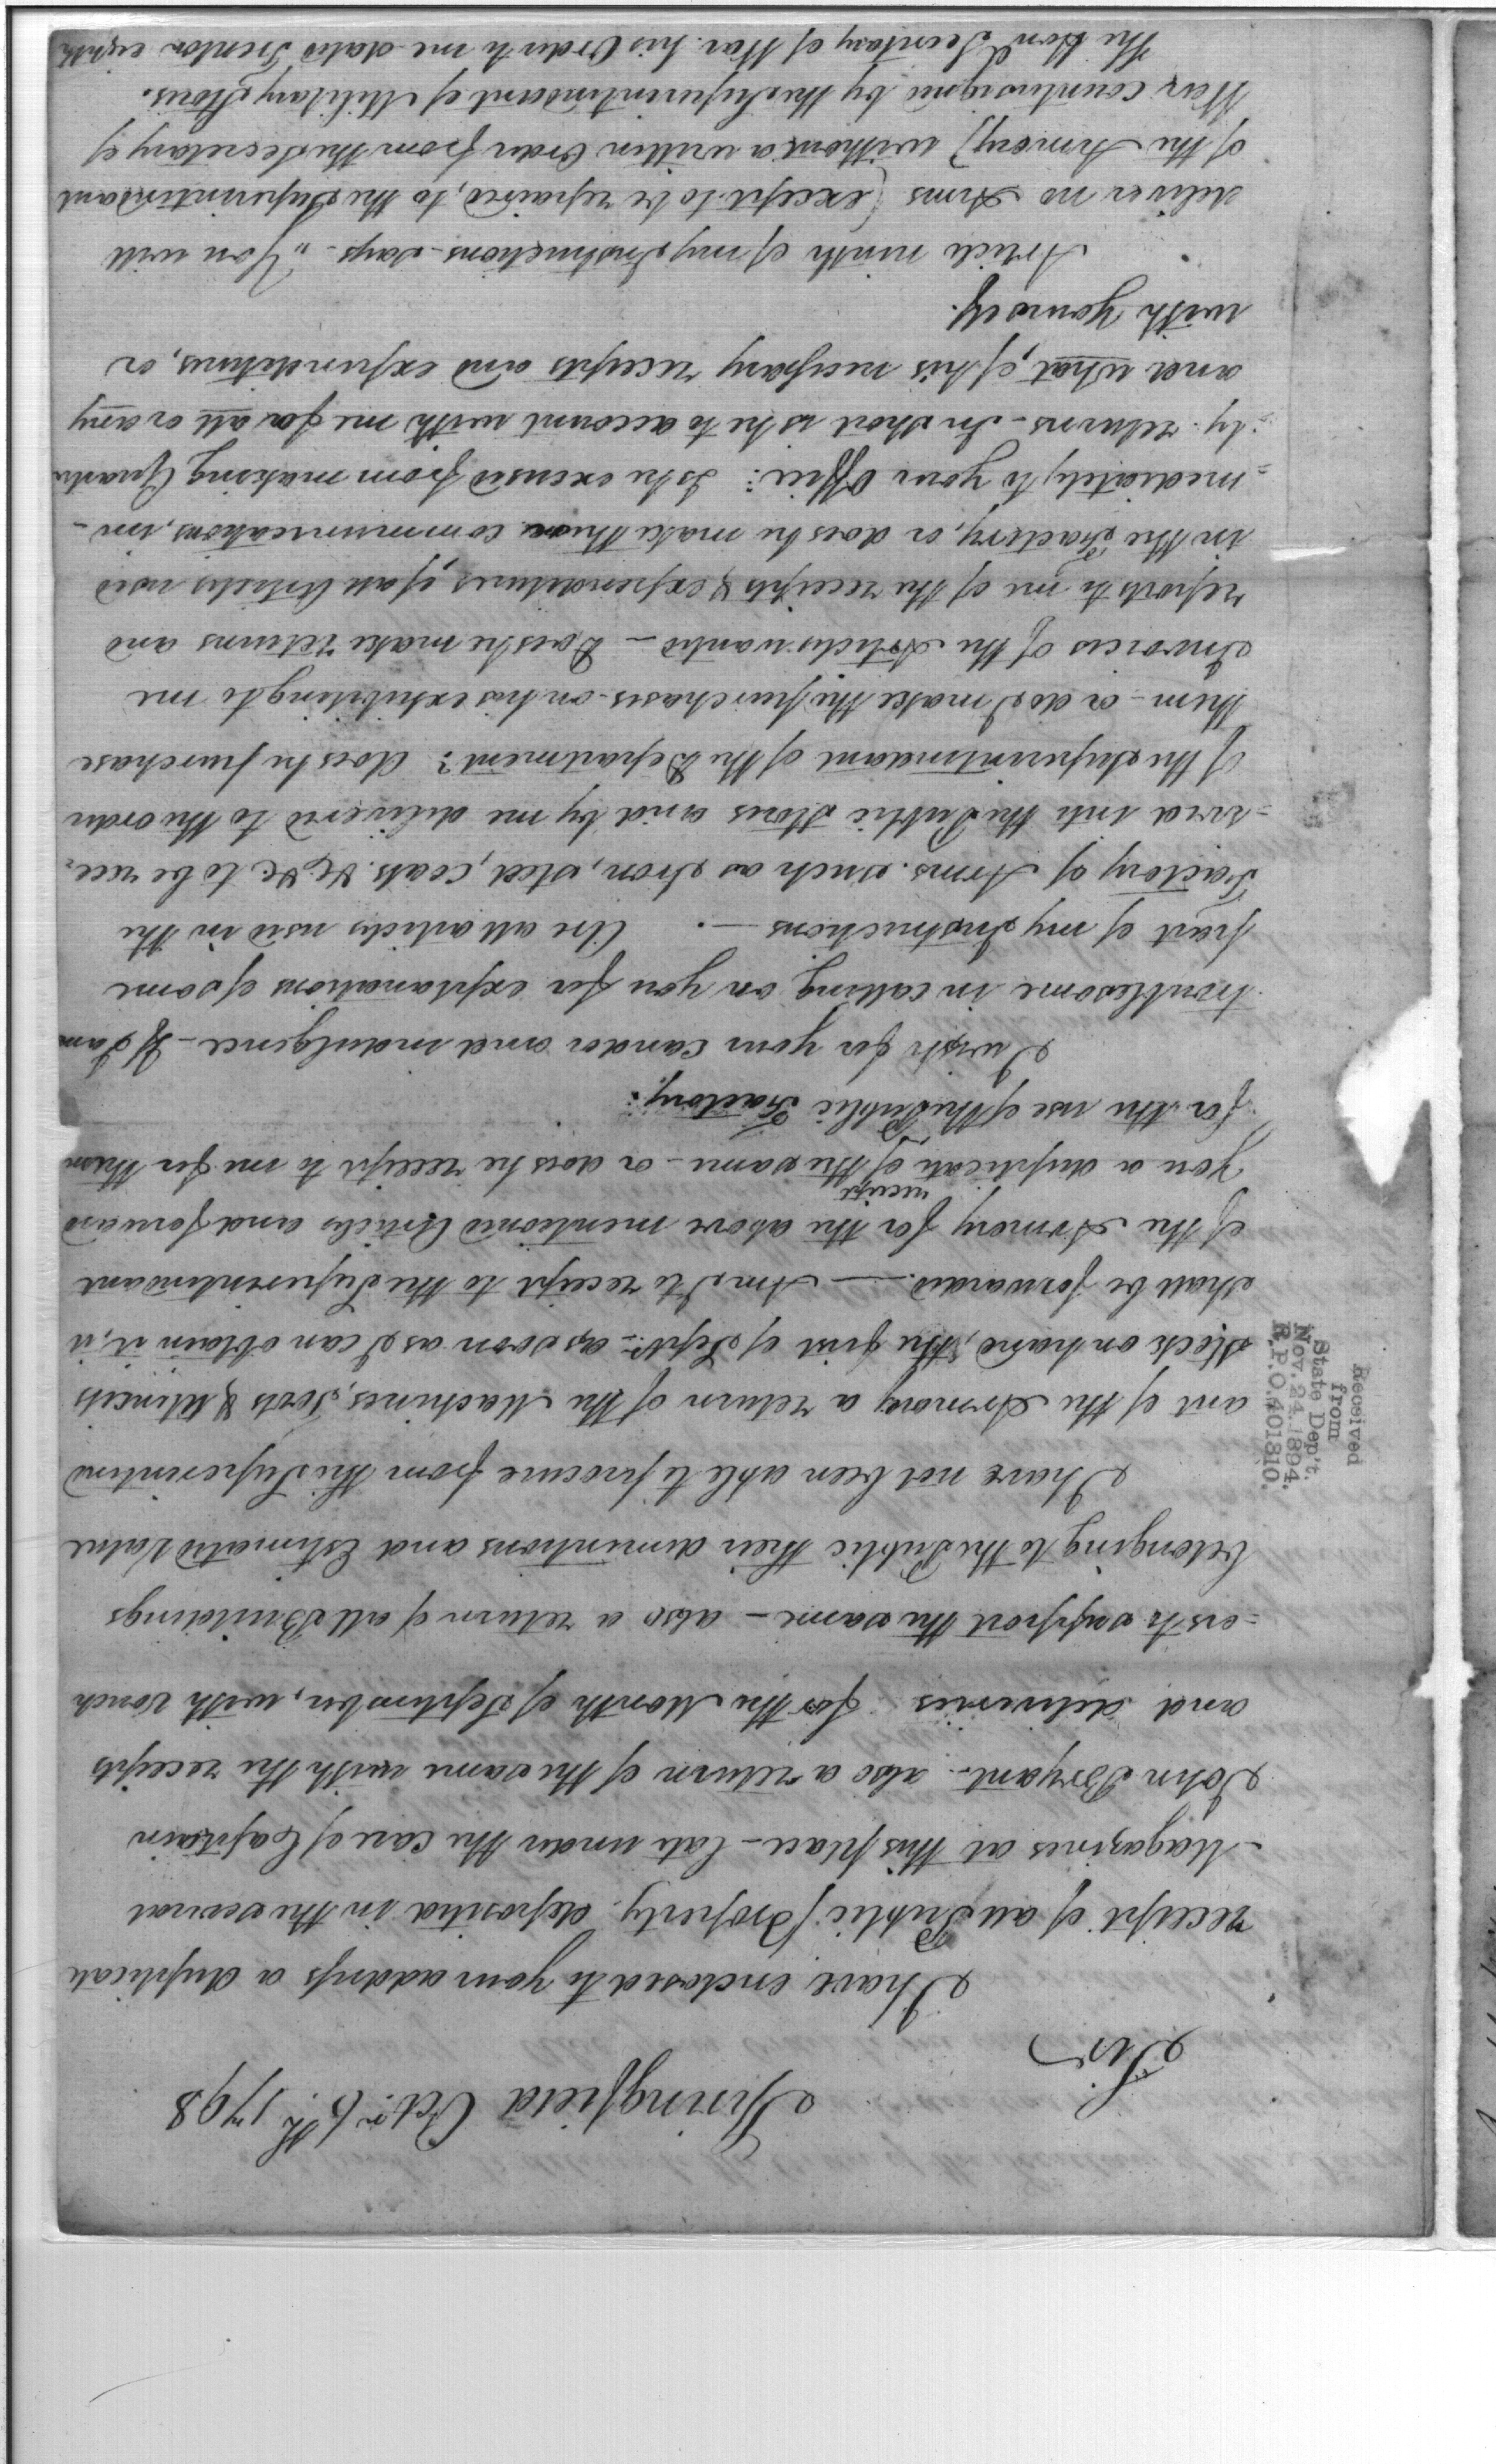 Springfield Octr. 6th. 1798
Sir
I have enclosed to your address a duplicate
receipt of all Public Property deposited in the several
Magazines at this place - late under the care of Captain
John Bryant - also a return of the same with the receipts
and deliveries for the Month of September, with vouch
=ers to support the same - also a return of all Buildings
belonging to the Public their dimentions and Estimated Value
I have not been able to procure from the Superintend
ant of the Armory a return of the Machines, Tools & Utincils
Stock on hand, the first of Septr. as soon as I can obtain it, it
shall be forwarded. — Am I to receipt to the Superintendant
of the Armory for the above mentioned Articles and forward
you a duplicate receipt of the same - or does he receipt to me for them
for the use of the Public Factory.
I wish for your candor and indulgence - If I am
troublesome in calling on you for explanations of some
part of my Instructions —. Are all articles used in the
Factory of Arms. such as Iron, Steel, Coals &c. &c. to be rece=
=ived into the Public Stores and by me delivered to the order
of the Superintendant of the Department? does he purchase
them - or do I make the purchases on his exhibiting to me
Invoices of the Articles wanted - Does he make returns and
reports to me of the receipts & expenditures, of all Articles used
in the Factory, or does he make those communications, im-
=mediately to your Office: Is he excused from making Quarter
=ly returns - In short is he to account with me for all or any
and what, of his necessary receipts and expenditures, or
with yourself.
Article ninth of my Instructions - says - "You will
deliver no Arms (except to be repaired, to the Superintendant
of the Armory) without a written Order from the Secretary of
War countersigned by the Superintendant of Military Stores.
The Hon Secretary of War. his Order to me dated Trenton eighth
Received
from
State Dep't.
Nov. 24. 1894.
R.P.O. 401810.